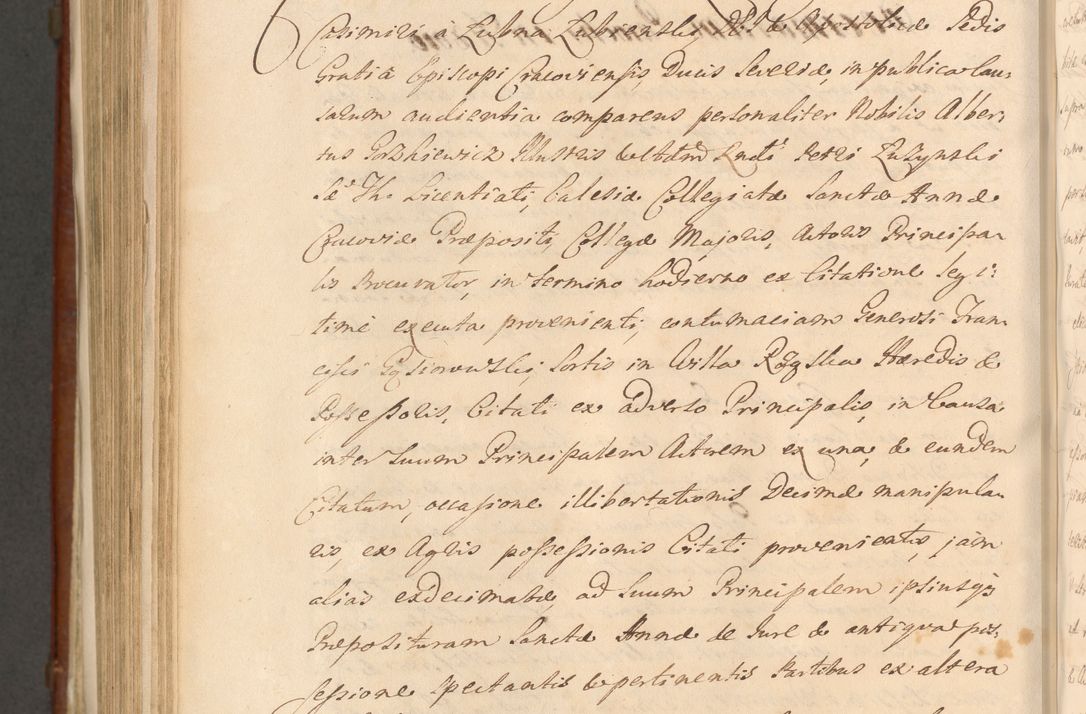 Casimiri à Łubna Łubienski, Dei & Apostolicæ Sedis
Gratiâ Episcopi Cracoviensis Ducis Severiæ, in publica Cau-
sarum audientia comparens personaliter Nobilis Alber-
tus Gorzkiewicz Illustris & Adm Rndi Petri
Sæ Th. Licentiati, Ecclesiæ Collegiatæ Sanctæ Annæ
Cracoviæ Præpositi, Collegæ Majoris, Actoris Principa-
lis Procurator, in termino hodierno ex Citatione legi-
time executa provenienti, contumaciam Generosi Fran-
cisci Gąsiorowski, Sortis in Villa Hæredis &
Possessoris, Citati ex adverso Principalis, in Causa
inter Suum Principalem Actorem ex una, & eundem
Citatum, occasione illibertationis Decimæ manipula-
ris, ex Agris possessionis Citati provenientis, jam
alias exdecimatæ, ad Suum Principalem ipsiusq;
Præposituram Sanctæ Annæ de Jure & antiqua pos-
sessione spectantis & pertinentis Partibus ex altera